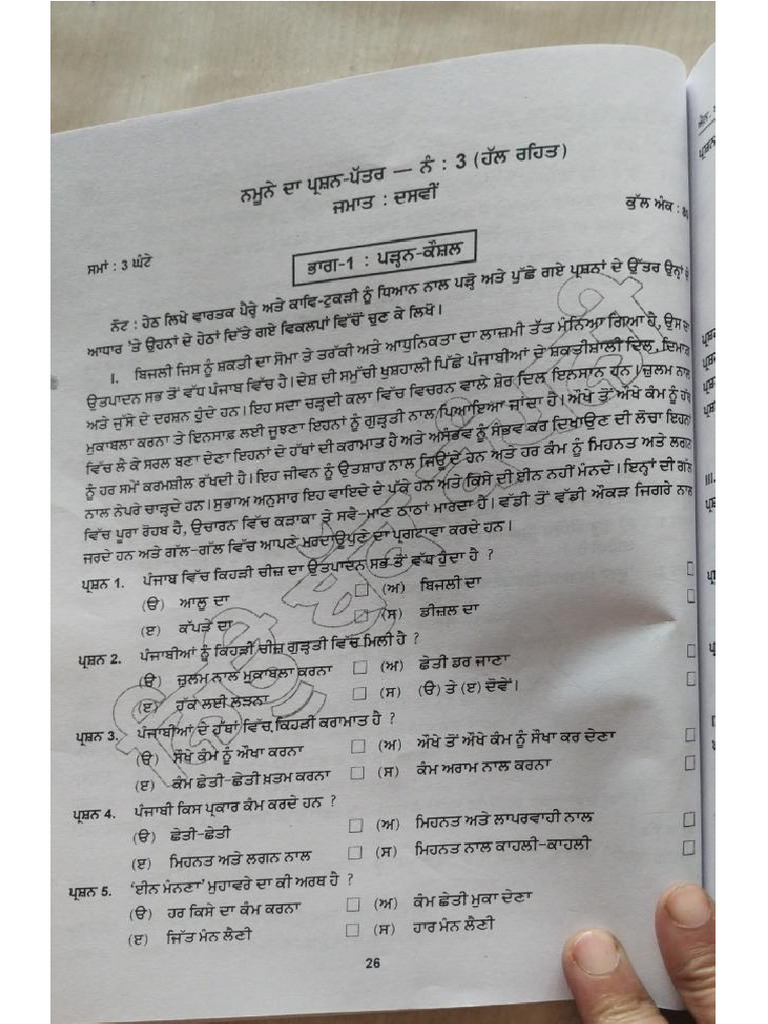 ਨਮੂਨੇ ਦਾ ਪ੍ਰਸ਼ਨ-ਪੱਤਰ — ਨੰ : 3 (ਹੱਲ ਰਹਿਤ)
ਜਮਾਤ : ਦਸਵੀਂ
ਸਮਾਂ : 3 ਘੰਟੇ
ਕੁੱਲ ਅੰਕ :
ਭਾਗ-1 : ਪੜ੍ਹਨ-ਕੌਸ਼ਲ
ਨੋਟ : ਹੇਠ ਲਿਖੇ ਵਾਰਤਕ ਪੈਰ੍ਹੇ ਅਤੇ ਕਾਵਿ-ਟੁਕੜੀ ਨੂੰ ਧਿਆਨ ਨਾਲ ਪੜੋ ਅਤੇ ਪੁੱਛੇ ਗਏ ਪ੍ਰਸ਼ਨਾਂ ਦੇ ਉੱਤਰ ਉਨ੍ਹਾਂ ਦੇ
ਆਧਾਰ 'ਤੇ ਉਹਨਾਂ ਦੇ ਹੇਠਾਂ ਦਿੱਤੇ ਗਏ ਵਿਕਲਪਾਂ ਵਿੱਚੋਂ ਚੁਣ ਕੇ ਲਿਖੋ।
II. ਬਿਜਲੀ ਜਿਸ ਨੂੰ ਸ਼ਕਤੀ ਦਾ ਸੋਮਾ ਤੇ ਤਰੱਕੀ ਅਤੇ ਆਧੁਨਿਕਤਾ ਦਾ ਲਾਜ਼ਮੀ ਤੱਤ ਮੰਨਿਆ ਗਿਆ ਹੈ, ਉਸ ਦਾ
ਉਤਪਾਦਨ ਸਭ ਤੋਂ ਵੱਧ ਪੰਜਾਬ ਵਿੱਚ ਹੈ। ਦੇਸ਼ ਦੀ ਸਮੁੱਚੀ ਖੁਸ਼ਹਾਲੀ ਪਿੱਛੇ ਪੰਜਾਬੀਆਂ ਦੇ ਸ਼ਕਤੀਸ਼ਾਲੀ ਦਿਲ, ਦਿਮਾਗ
ਅਤੇ ਜੁੱਸੇ ਦੇ ਦਰਸ਼ਨ ਹੁੰਦੇ ਹਨ। ਇਹ ਸਦਾ ਚੜ੍ਹਦੀ ਕਲਾ ਵਿੱਚ ਵਿਚਰਨ ਵਾਲੇ ਸ਼ੇਰ ਦਿਲ ਇਨਸਾਨ ਹਨ। ਜ਼ੁਲਮ ਨਾਲ
ਮੁਕਾਬਲਾ ਕਰਨਾ ਤੇ ਇਨਸਾਫ਼ ਲਈ ਜੂਝਣਾ ਇਹਨਾਂ ਨੂੰ ਗੁੜ੍ਹਤੀ ਨਾਲ ਪਿਆਇਆ ਜਾਂਦਾ ਹੈ। ਔਖੇ ਤੋਂ ਔਖੇ ਕੰਮ ਨੂੰ ਹੱਥ
ਵਿੱਚ ਲੈ ਕੇ ਸਰਲ ਬਣਾ ਦੇਣਾ ਇਹਨਾਂ ਦੇ ਹੱਥਾਂ ਦੀ ਕਰਾਮਾਤ ਹੈ ਅਤੇ ਅਸੰਭਵ ਨੂੰ ਸੰਭਵ ਕਰ ਦਿਖਾਉਣ ਦੀ ਲੋਚਾ ਇਹਨਾਂ
ਨੂੰ ਹਰ ਸਮੇਂ ਕਰਮਸ਼ੀਲ ਰੱਖਦੀ ਹੈ। ਇਹ ਜੀਵਨ ਨੂੰ ਉਤਸ਼ਾਹ ਨਾਲ ਜਿਉਂਦੇ ਹਨ ਅਤੇ ਹਰ ਕੰਮ ਨੂੰ ਮਿਹਨਤ ਅਤੇ ਲਗਨ
ਨਾਲ ਨੇਪਰੇ ਚਾੜ੍ਹਦੇ ਹਨ। ਸੁਭਾਅ ਅਨੁਸਾਰ ਇਹ ਵਾਇਦੇ ਦੇ ਪੱਕੇ ਹਨ ਅਤੇ ਕਿਸੇ ਦੀ ਈਨ ਨਹੀਂ ਮੰਨਦੇ। ਇਨ੍ਹਾਂ ਦੀ ਗੱਲ
ਵਿੱਚ ਪੂਰਾ ਰੋਹਬ ਹੈ, ਉਚਾਰਨ ਵਿੱਚ ਕੜਾਕਾ ਤੇ ਸਵੈ-ਮਾਣ ਠਾਠਾਂ ਮਾਰਦਾ ਹੈ। ਵੱਡੀ ਤੋਂ ਵੱਡੀ ਔਕੜ ਜਿਗਰੇ ਨਾਲ
ਜਰਦੇ ਹਨ ਅਤੇ ਗੱਲ-ਗੱਲ ਵਿੱਚ ਆਪਣੇ ਮਰਦਾਊਪੁਣੇ ਦਾ ਪ੍ਰਗਟਾਵਾ ਕਰਦੇ ਹਨ।
ਪ੍ਰਸ਼ਨ 1. ਪੰਜਾਬ ਵਿੱਚ ਕਿਹੜੀ ਚੀਜ਼ ਦਾ ਉਤਪਾਦਨ ਸਭ ਤੋਂ ਵੱਧ ਹੁੰਦਾ ਹੈ ?
(ੳ) ਆਲੂ ਦਾ (ਅ) ਬਿਜਲੀ ਦਾ
(ੲ) ਕੱਪੜੇ ਦਾ (ਸ) ਡੀਜ਼ਲ ਦਾ
ਪ੍ਰਸ਼ਨ 2. ਪੰਜਾਬੀਆਂ ਨੂੰ ਕਿਹੜੀ ਚੀਜ਼ ਗੁੜ੍ਹਤੀ ਵਿੱਚ ਮਿਲੀ ਹੈ ?
(ੳ) ਜ਼ੁਲਮ ਨਾਲ ਮੁਕਾਬਲਾ ਕਰਨਾ (ਅ) ਛੇਤੀ ਡਰ ਜਾਣਾ
(ੲ) ਹੱਕ ਲਈ ਲੜਨਾ (ਸ) (ੳ) ਤੇ (ੲ) ਦੋਵੇਂ।
ਪ੍ਰਸ਼ਨ 3. ਪੰਜਾਬੀਆਂ ਦੇ ਹੱਥਾਂ ਵਿੱਚ ਕਿਹੜੀ ਕਰਾਮਾਤ ਹੈ ?
(ੳ) ਸੌਖੇ ਕੰਮ ਨੂੰ ਔਖਾ ਕਰਨਾ (ਅ) ਔਖੇ ਤੋਂ ਔਖੇ ਕੰਮ ਨੂੰ ਸੌਖਾ ਕਰ ਦੇਣਾ
(ੲ) ਕੰਮ ਛੇਤੀ-ਛੇਤੀ ਖ਼ਤਮ ਕਰਨਾ (ਸ) ਕੰਮ ਅਰਾਮ ਨਾਲ ਕਰਨਾ
ਪ੍ਰਸ਼ਨ 4. ਪੰਜਾਬੀ ਕਿਸ ਪ੍ਰਕਾਰ ਕੰਮ ਕਰਦੇ ਹਨ ?
(ੳ) ਛੇਤੀ-ਛੇਤੀ (ਅ) ਮਿਹਨਤ ਅਤੇ ਲਾਪਰਵਾਹੀ ਨਾਲ
(ੲ) ਮਿਹਨਤ ਅਤੇ ਲਗਨ ਨਾਲ (ਸ) ਮਿਹਨਤ ਨਾਲ ਕਾਹਲੀ-ਕਾਹਲੀ
ਪ੍ਰਸ਼ਨ 5. 'ਈਨ ਮੰਨਣਾ' ਮੁਹਾਵਰੇ ਦਾ ਕੀ ਅਰਥ ਹੈ ?
(ੳ) ਹਰ ਕਿਸੇ ਦਾ ਕੰਮ ਕਰਨਾ (ਅ) ਕੰਮ ਛੇਤੀ ਮੁਕਾ ਦੇਣਾ
(ੲ) ਜਿੱਤ ਮੰਨ ਲੈਣੀ (ਸ) ਹਾਰ ਮੰਨ ਲੈਣੀ
26